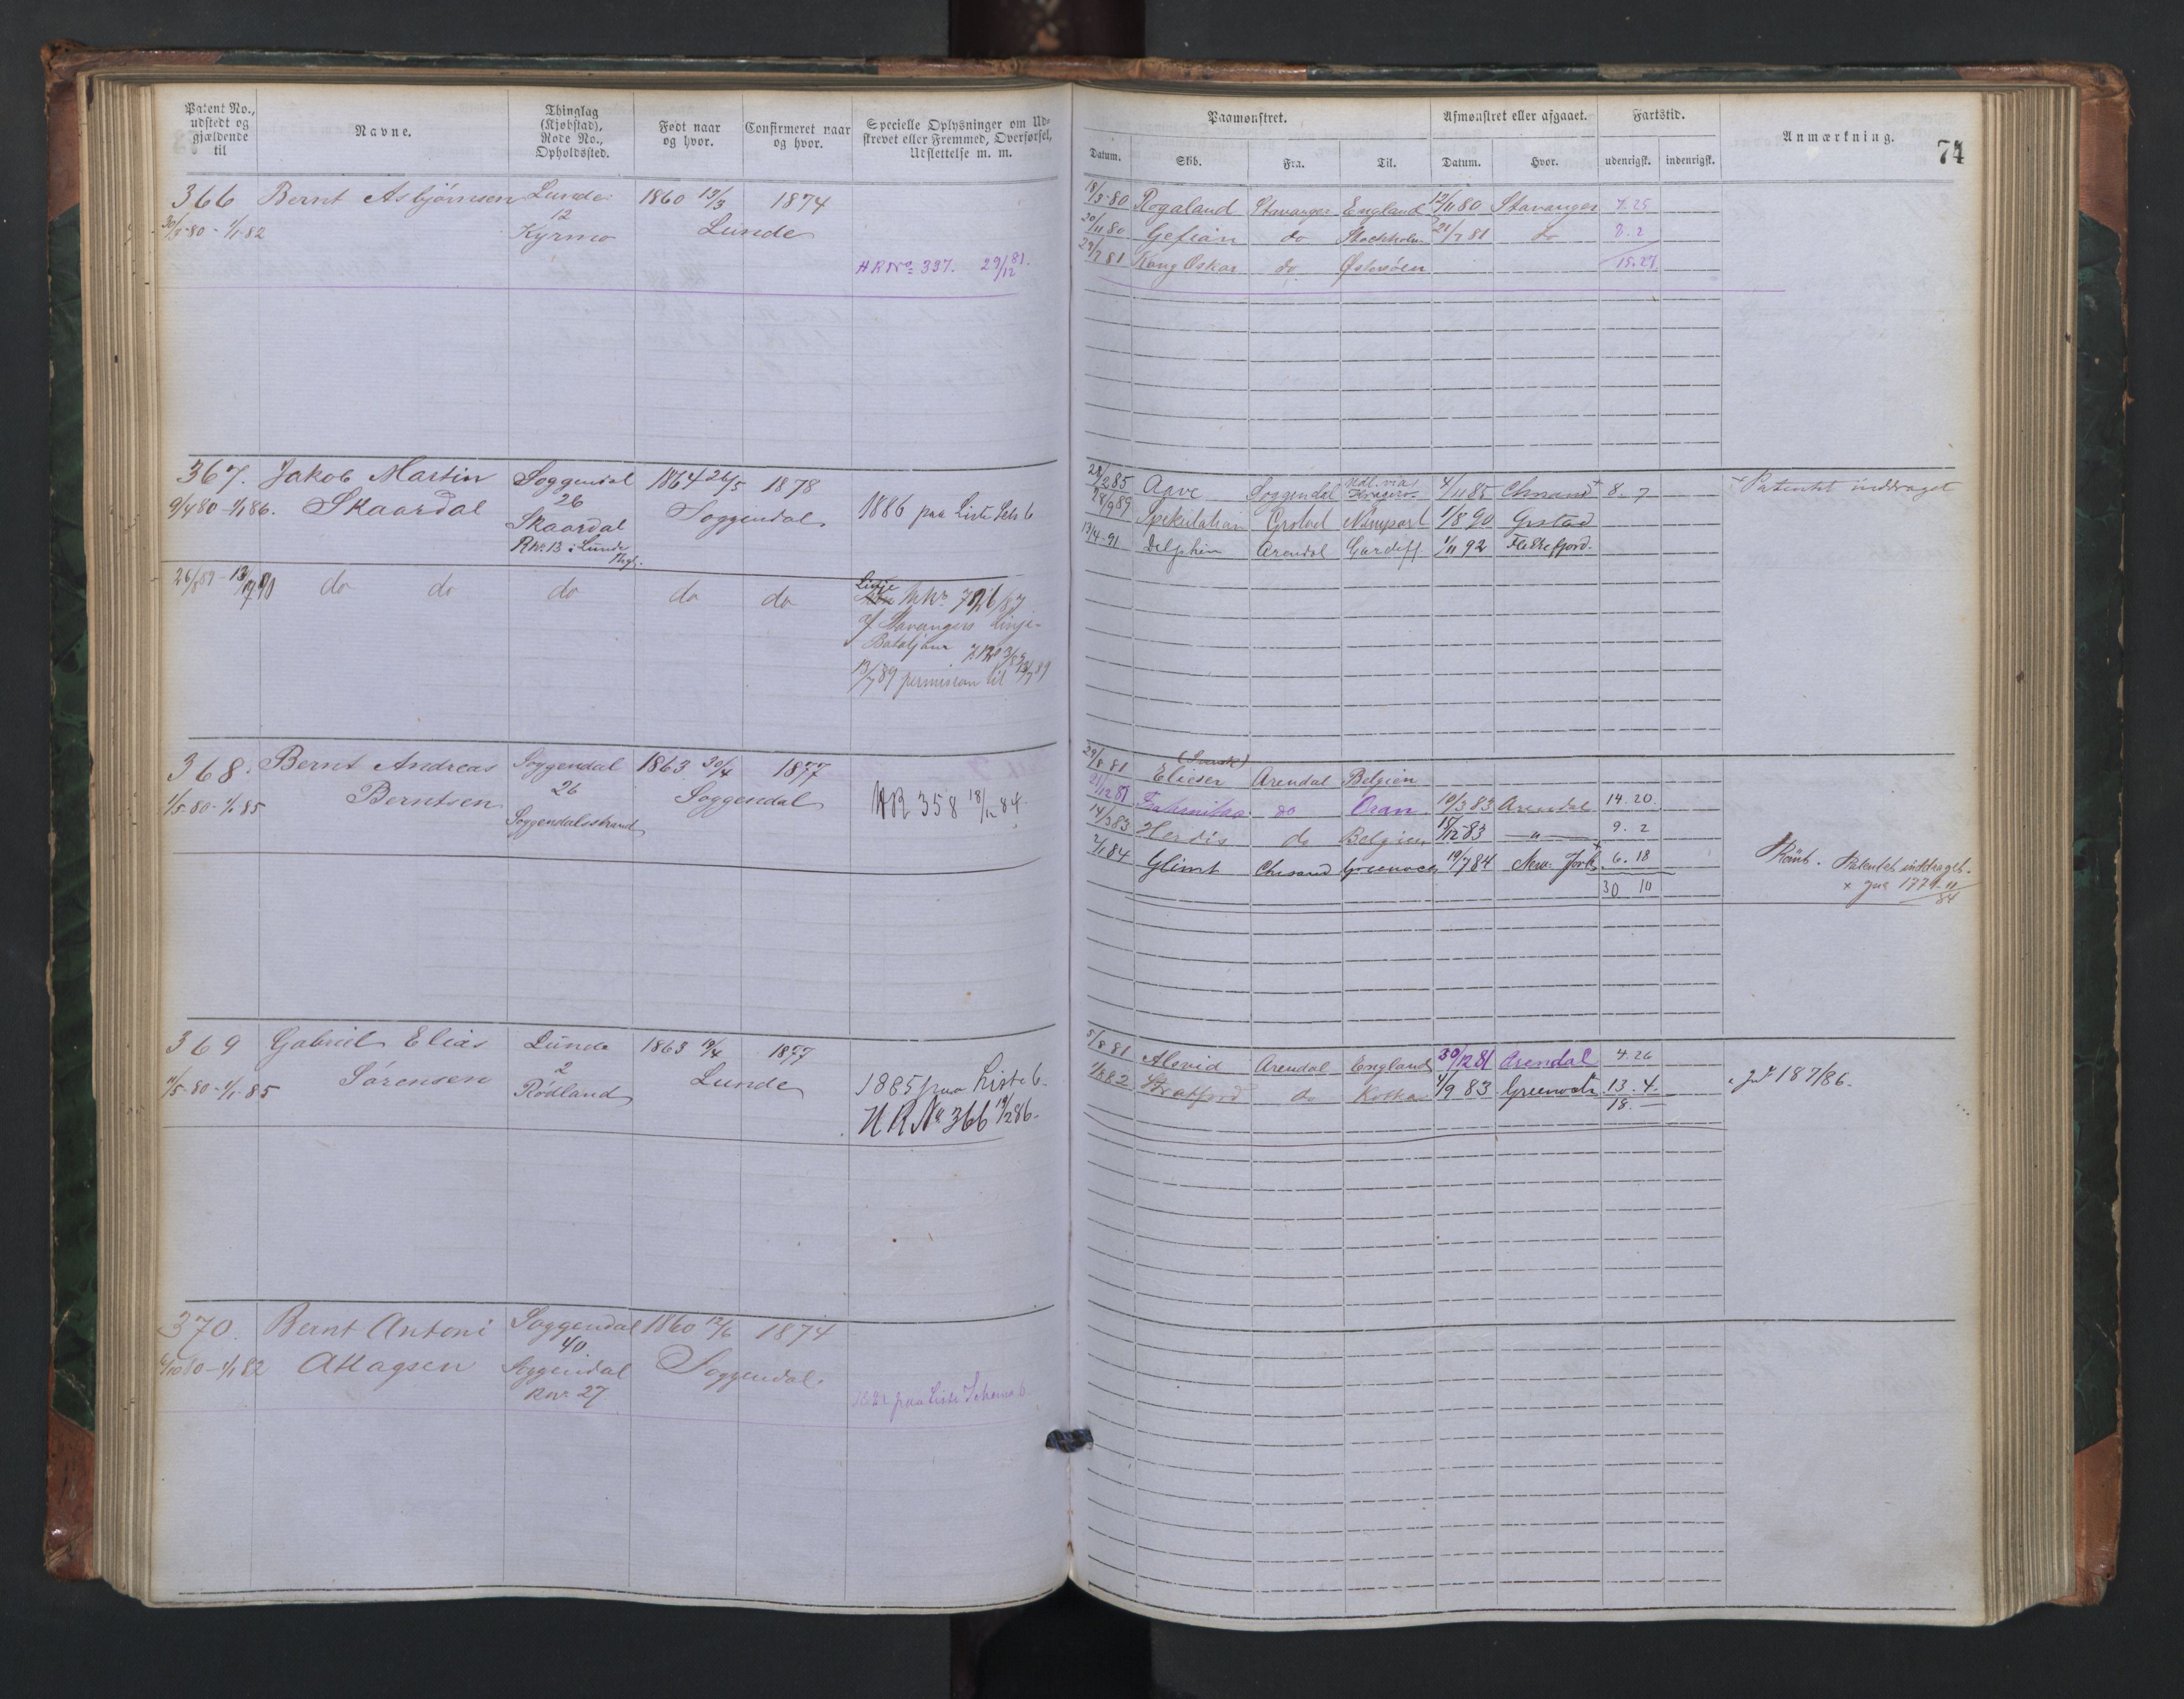 Patent No., udstedt og gjældende til
Navne.
Thinglag (Kjøbstad), Rode No., Opholdssted.
Født naar og hvor.
Confirmeret naar og hvor.
Specielle Oplysninger om Udskrevet eller Fremmed, Overførsel, Udslettelse m. m.
366 Bernt Asbjørnsen Lunde 1860 13/3 1874
30/3-80 - 1/1-82 12 Kyrmo Lunde
HR No 397. 29/12 81.
367. Jakob Martin Soggendal 1864 26/5 1878
9/4 80 - 1/1 86. Skaardal 26 Skaardal Soggendal 1886 paa Liste
RNr. 13 i Lunde
26/8 89 - do do do do do
Linje
Stavangers Linje-
Bataljon
13/7 89 permission til 13/7 89
368. Bernt Andreas Soggendal 1863. 30/4 1877
1/5-80 - 1/1-85 Berntsen 26 Soggendal HR 358 18/12 84.
Soggendalsstrand
369 Gabriel Elias Lunde 1863 19/4 1877
1/1-85 Sørensen 2 Rødland Lunde 1885 paa Liste 6.
HR No 366 19/2 86.
370. Bernt Antoni Soggendal 1860 12/6 1874
1/1 82 Attagsen 40 Soggendal Soggendal.
RNr. 27 paa Liste Schema 6.
Paamønstret.
Afmønstret eller afgaaet.
Fartstid.
Anmærkning.
74
Datum. Skib. Fra. Til. Datum. Hvor. udenrigsk. indenrigsk.
18/3-80 Rogaland Stavanger England 12/11 80 Stavanger 7.25
20/11 80 Gefion do Stockholm 21/7 81 do 8.2
29/7 81 Kong Oskar do Østersøen 15.27
28/2 85 Aave Soggendal Udl. via Kragerø 4/11 85 Chrsand + 8.7 + Patentet inddraget
28/9 89 Spekulation Grstad Newport 1/8 90 Grstad
13/4-91 Delphin Arendal Cardiff 1/11 92 Flekkefjord.
(Svensk)
29/8 81 Elieser Arendal Belgien
21/12 81 do Oran 10/3 83 Arendal 14.20
14/3 83 Herdis do Belgien 18/12-83 — " — 9.2
2/1 84 Glimt Chrsand Greenock 19/7 84 New-York + 6.18 Rømt. Patentet inddraget.
30 10 × Jnr 1774-11/84
5/8 81 Alovid Arendal England 30/12 81 Arendal 4.26
do Kotka 4/9 83 Greenock 13.4. Jnr 187/86.
18.—